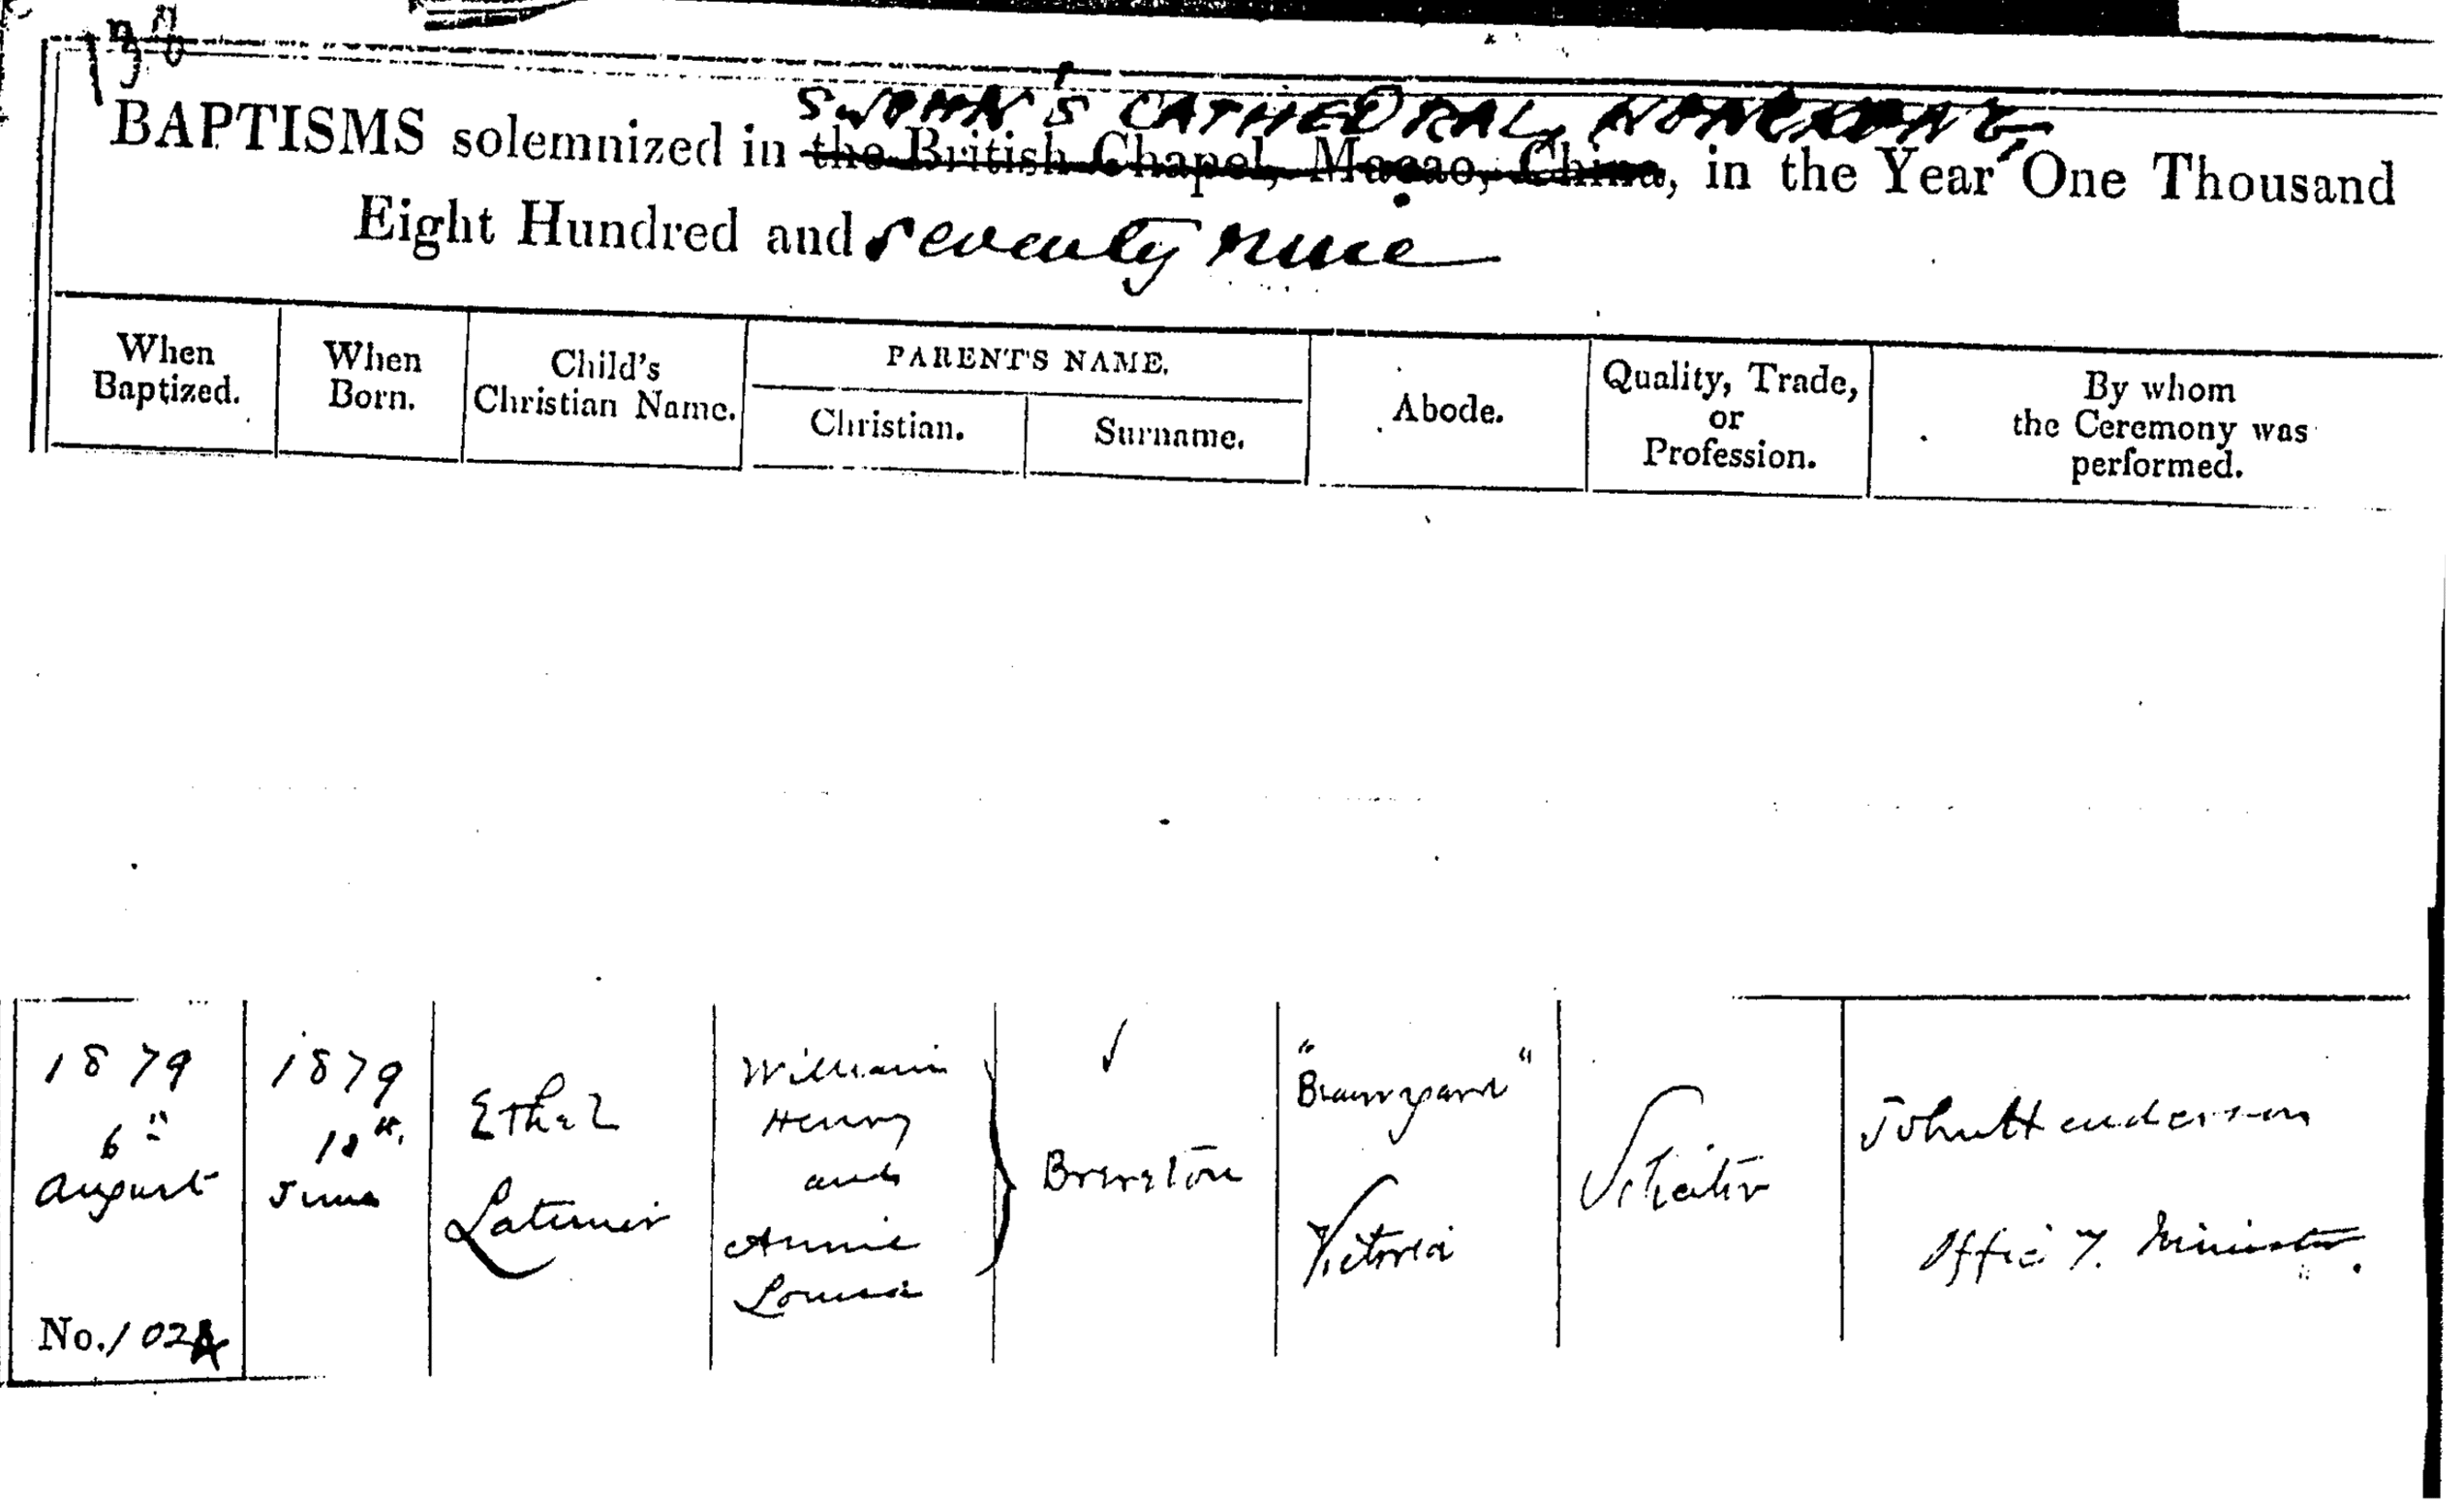 138
ST JOHN'S CATHEDRAL, HONGKONG,
BAPTISMS solemnized in the British Chapel, Macao, China, in the Year One Thousand
Eight Hundred and seventy nine
When Baptized.
When Born.
Child's Christian Name.
PARENT'S NAME.
Christian.
Surname.
Abode.
Quality, Trade, or Profession.
By whom the Ceremony was performed.
1879
6th
August
No. 102A
1879
10th
June
Ethel
Latimer
William
Henry
and
Annie
Louisa
Brereton
Victoria
Solicitor
John Henderson
Offic g. Minister.